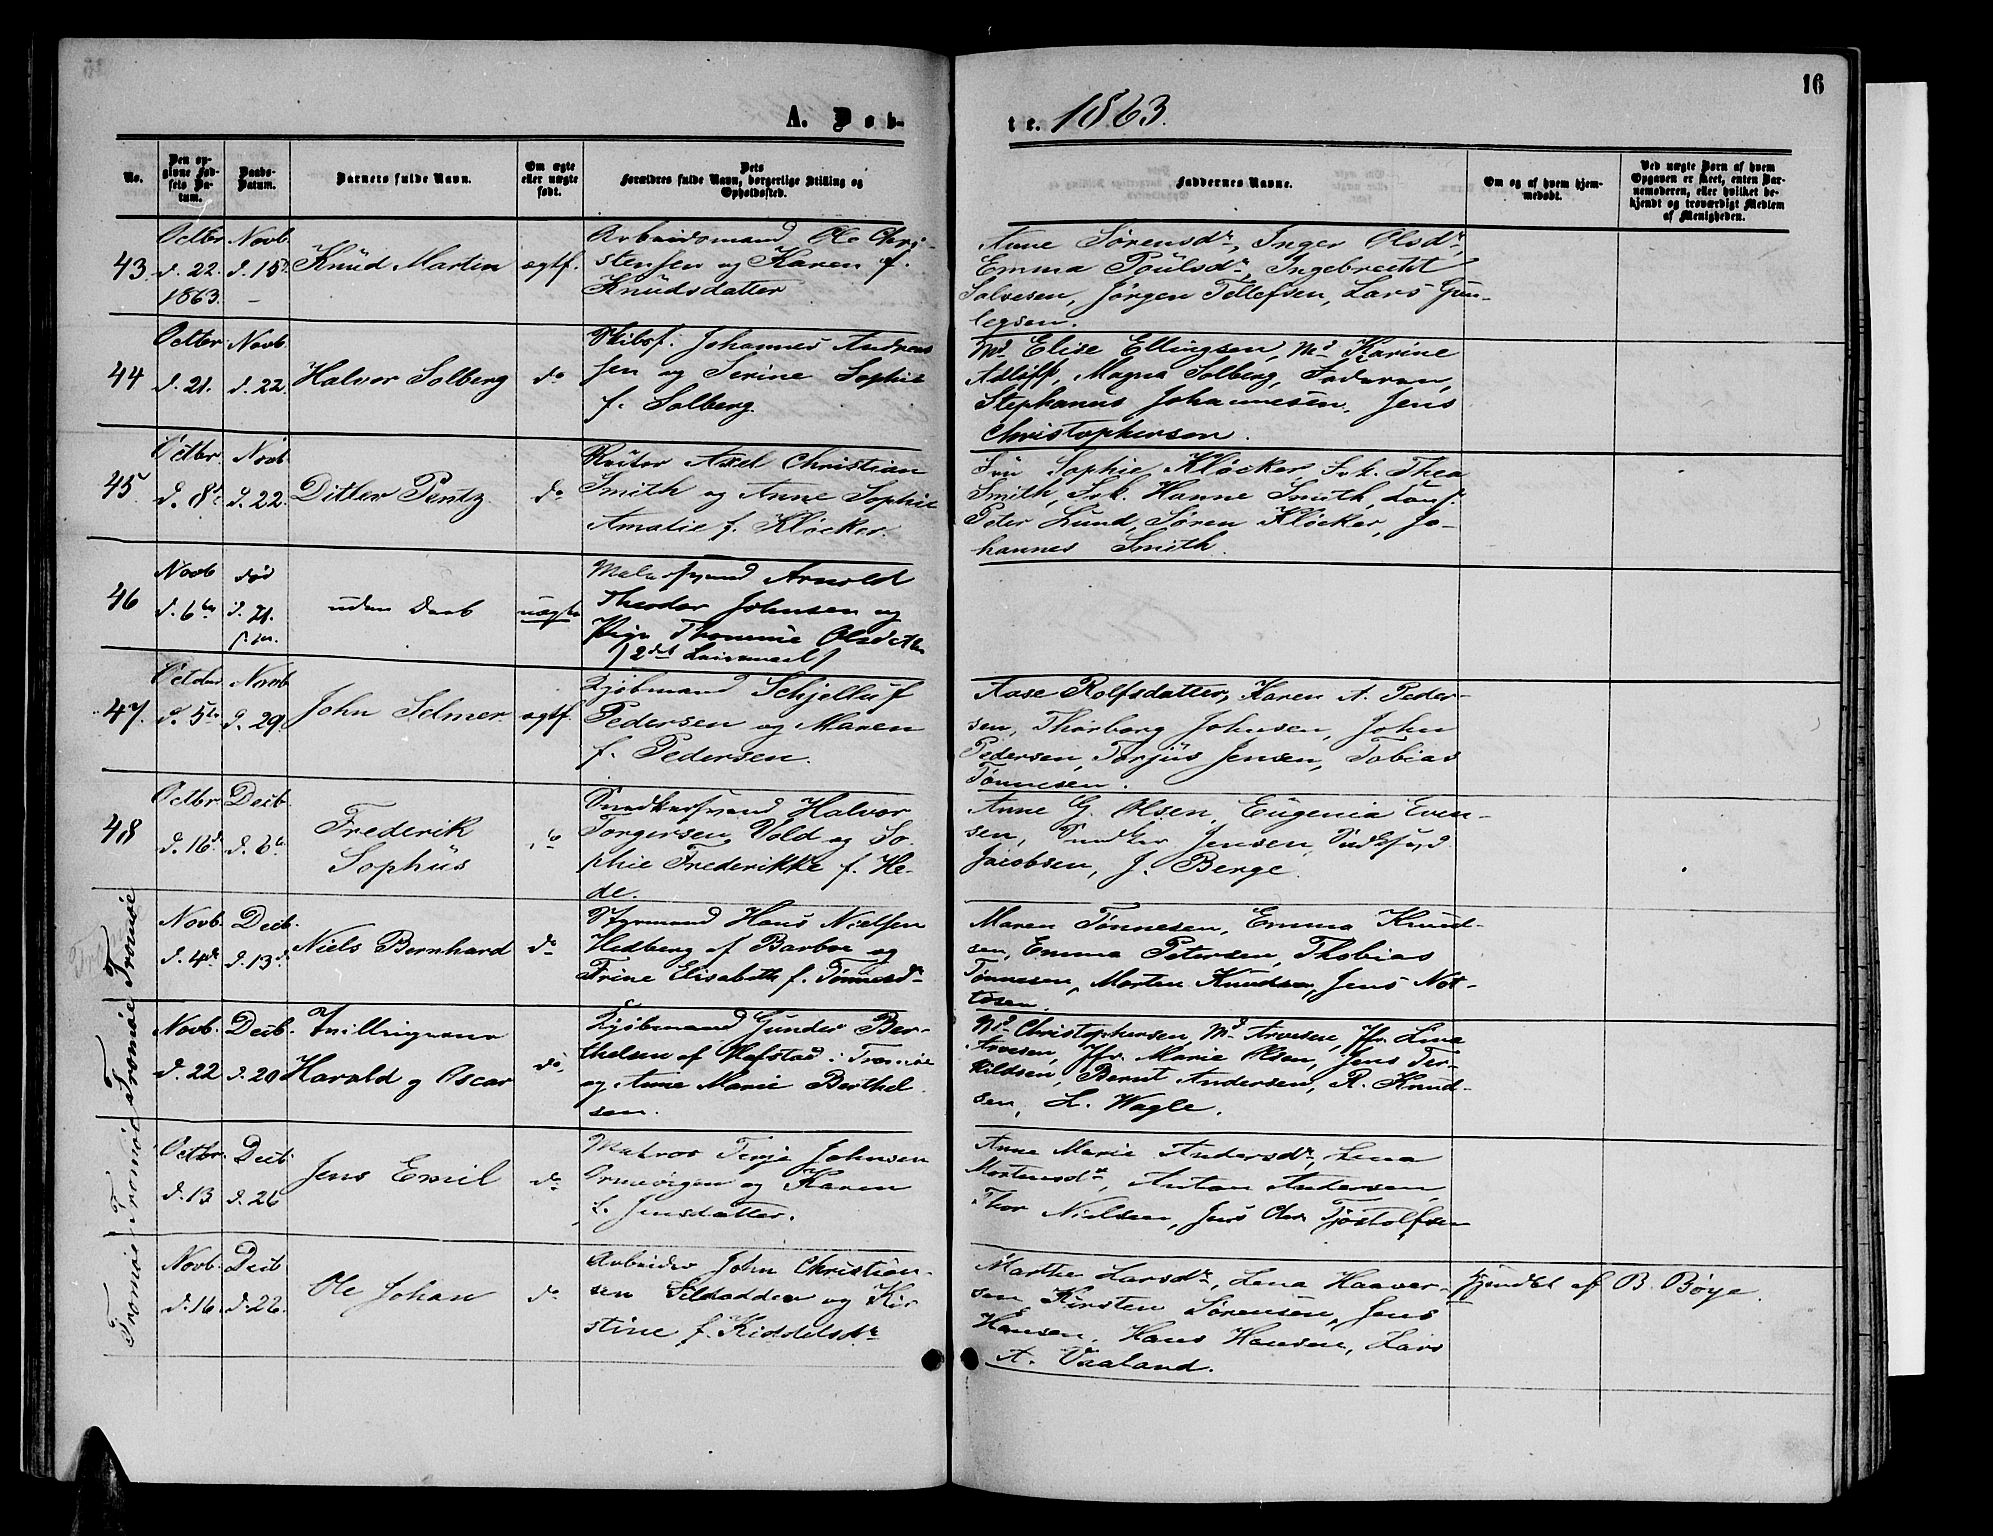 16
A. Døb-
te. 1863.
No.
Den op-
givne Fød-
sels Da-
tum.
Daabs-
Datum.
Barnets fulde Navn.
Om ægte
eller uægte
født.
Dets
Forældres fulde Navn, borgerlige Stilling og
Opholdssted.
Faddernes Navne.
Om og af hvem hjem-
medøbt.
Ved uægte Børn af hvem
Opgaven er skeet, enten Bar-
nemoderen, eller hvilket be-
kjendt og troværdigt Medlem
af Menigheden.
43
Octbr
d. 22.
1863.
Novb
d. 15
Knud Martin
ægtf.
Arbeidsmand Ole Chri-
stensen og Karen f.
Knudsdatter
Anne Sørensdr, Inger Olsdr,
Emma Poulsdr, Ingebrecht
Salvesen, Jørgen Tellefsen, Lars Gun-
legsen.
44
Octbr
d. 21.
Novb
d. 22.
Halvor Solberg
do
Skibsf. Johannes Andreas
sen og Serine Sophie
f. Solberg.
Md Elise Ellingsen, Md Karine
Adluff, Magna Solberg, Faderen,
Stephanus Johannesen, Jens
Christophersen.
45
Octbr
d. 8
Novb
d. 22.
Ditlev Pentz.
do
Axel Christian
Smith og Anne Sophie
Amalie f. Kløcker.
Fru Sophie Kløcker Frk. Thea
Smith, Frk. Hanne Smith,
Peter Lund, Søren Kløcker, Jo-
hannes Smith.
46
Novb
d. 6te
død
d. 21.
uden Daab
uægte
Malersvend Arnold
Theodor Johnsen og
Pige Thomine Olsdatter
(2det Leiermaal)
47.
Octbr
d. 5te
Novb
d. 29.
John Selmer
ægtf.
Kjøbmand Schjelluf
Pedersen og Maren
f. Pedersen.
Aase Rolfsdatter, Karen A. Peder-
sen, Thorborg Johnsen, John
Pedersen, Torjus Jensen, Tobias
Tønnesen.
48
Octbr
d. 16de
Decb
d. 6te
Frederik
Sophus
do
Snedkersvend Halvor
Torgersen Vold og So-
phie Frederikke f. He-
de.
Anne G. Olsen, Eugenia Even-
sen, Snedker Jensen,
Jacobsen, J. Berge.
Tromøe
Novb.
d. 4de
Decb
d. 13de
Niels Bernhard
do
Styrmand Hans Nielsen
Hedberg af Barboe og
Trine Elisabeth f. Tønnesdr
Maren Tønnesen, Emma Knud-
sen, Emma Petersen, Thobias
Tønnesen, Morten Knudsen, Jens Not-
tosen.
Tromøe
Novb.
d. 22
Decb.
d. 20
Tvillingerne
Harald og Oscar
do
Kjøbmand Gunder Ber-
thelsen af Hofstad i Tromøe
og Anne Marie Berthel-
sen.
Md Christophersen, Md Arvesen, Jfr. Lina
Arvesen, Jfr. Marie Olsen, Jens Ter-
kildsen, Bernt Andersen, R. Knud-
sen, L. Wagle.
Tromøe
Octbr.
d. 13
Decb
d. 26
Jens Emil
do
Matros Terje Johnsen
og Karen
f. Jensdatter.
Anne Marie Andersdr, Lena
Mortensdr, Anton Andersen,
Thor Nielsen, Jens Chr. Tjøstolfsen
Tromøe
Novb.
d. 16.
Decb
d. 26.
Ole Johan
do
Arbeider John Christian-
sen Sildodden og Kir-
stine f. Kiddelsdr
Marthe Larsdr, Lena Haaver-
sen Kirsten Sørensen, Jens
Hansen, Hans Hansen, Lars
A. Vaaland.
Hjemdøbt af B. Bøye.